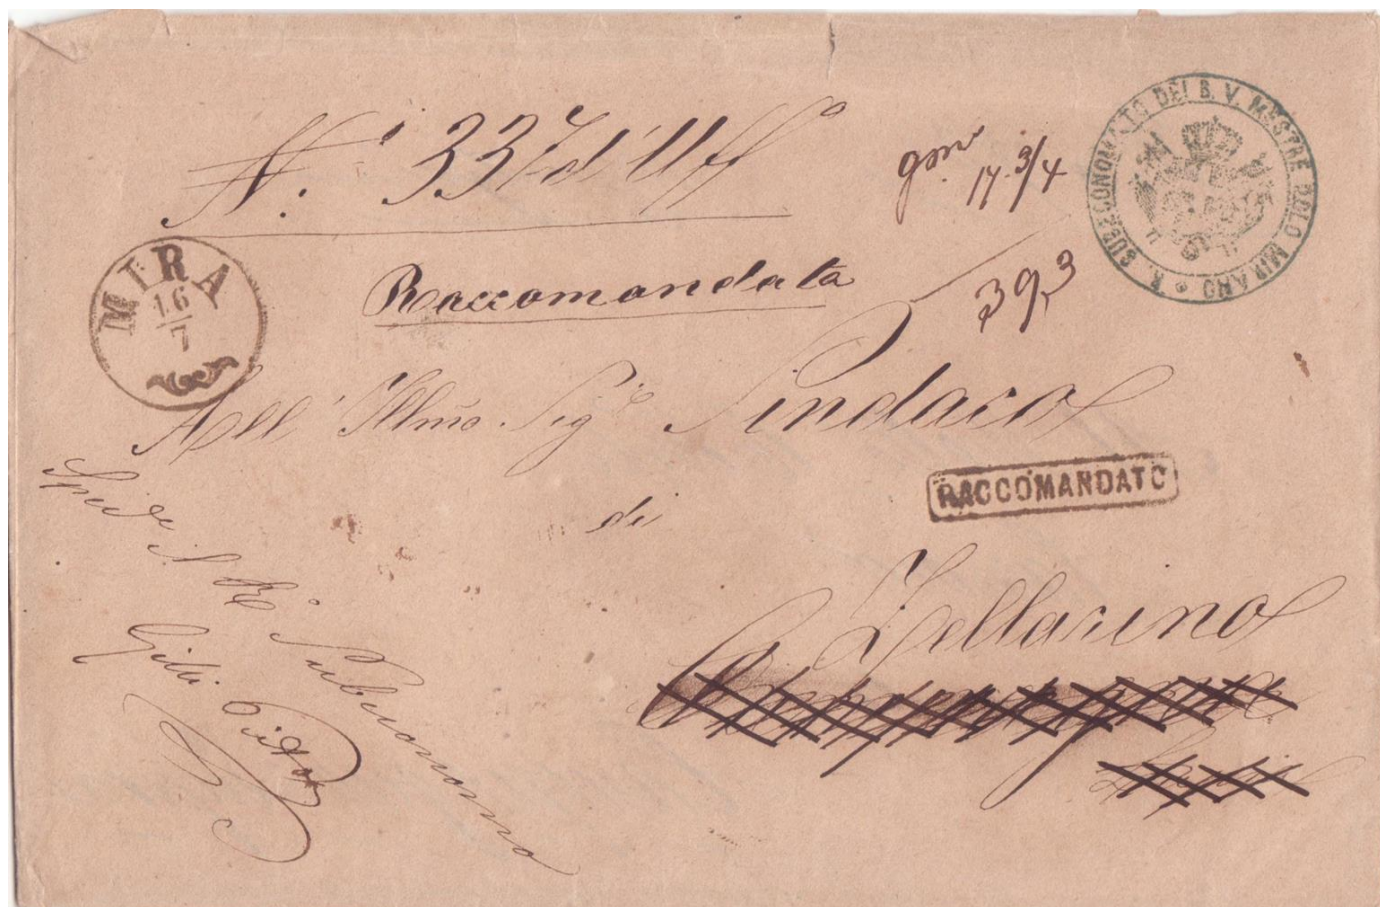 N.° 337 d'Uff°
gmi 17 3/4
R. SUBECONOMATO DEI B. V. MESTRE DOLO MIRANO
MIRA
16
7
Raccomandata
393
All' Illmo Sigr Sindaco
RACCOMANDATO
di
Zellarino
Spide il Ro Subeconomo